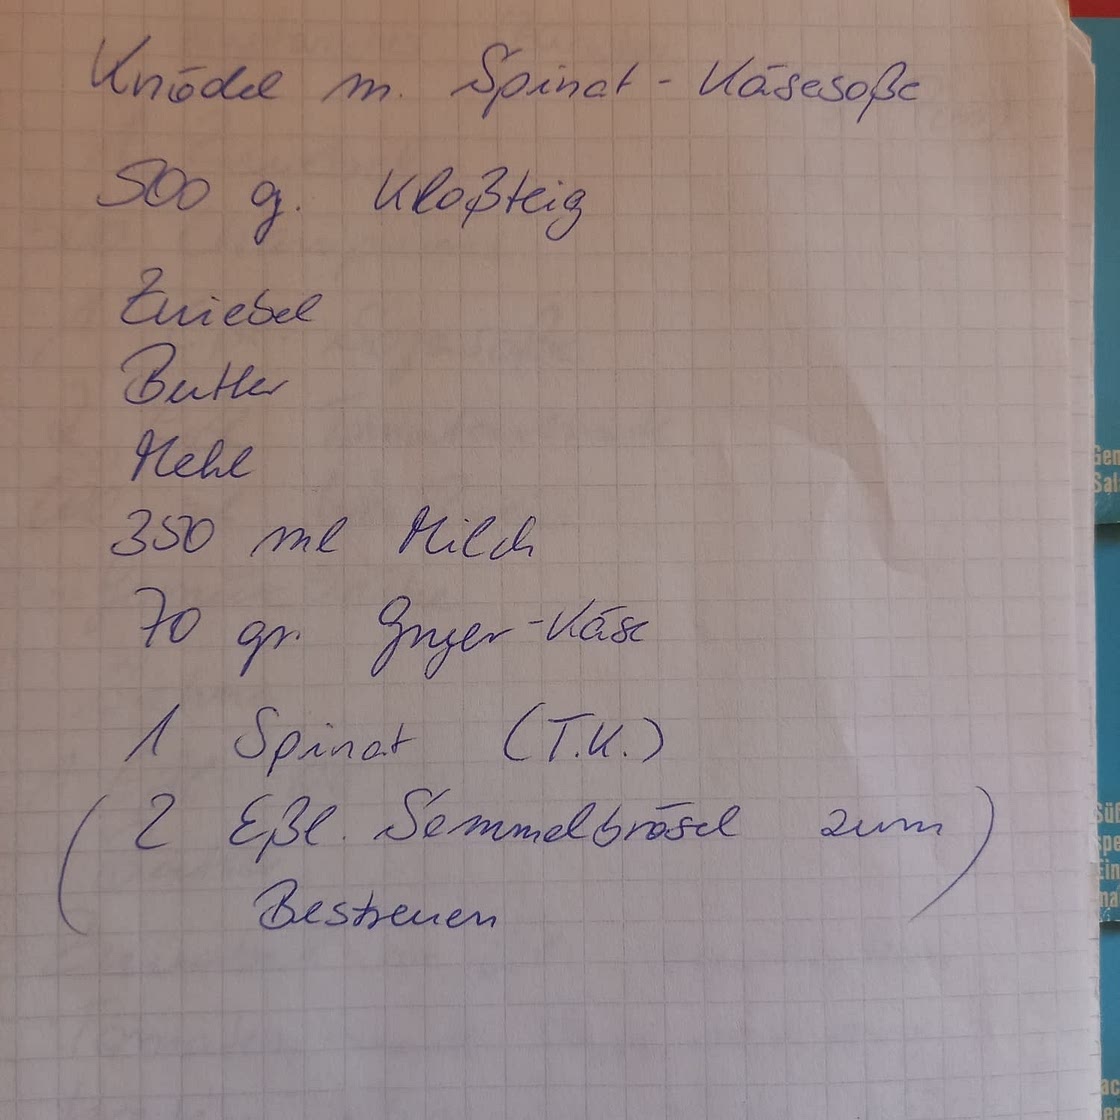 Knödel m. Spinat-Käsesoße
500 g. Kloßteig
Zwiebel
Butter
Mehl
350 ml Milch
70 gr. Gryer-Käse
1 Spinat (T.K.)
(2 Eßl. Semmelbrösel zum
Bestreuen)